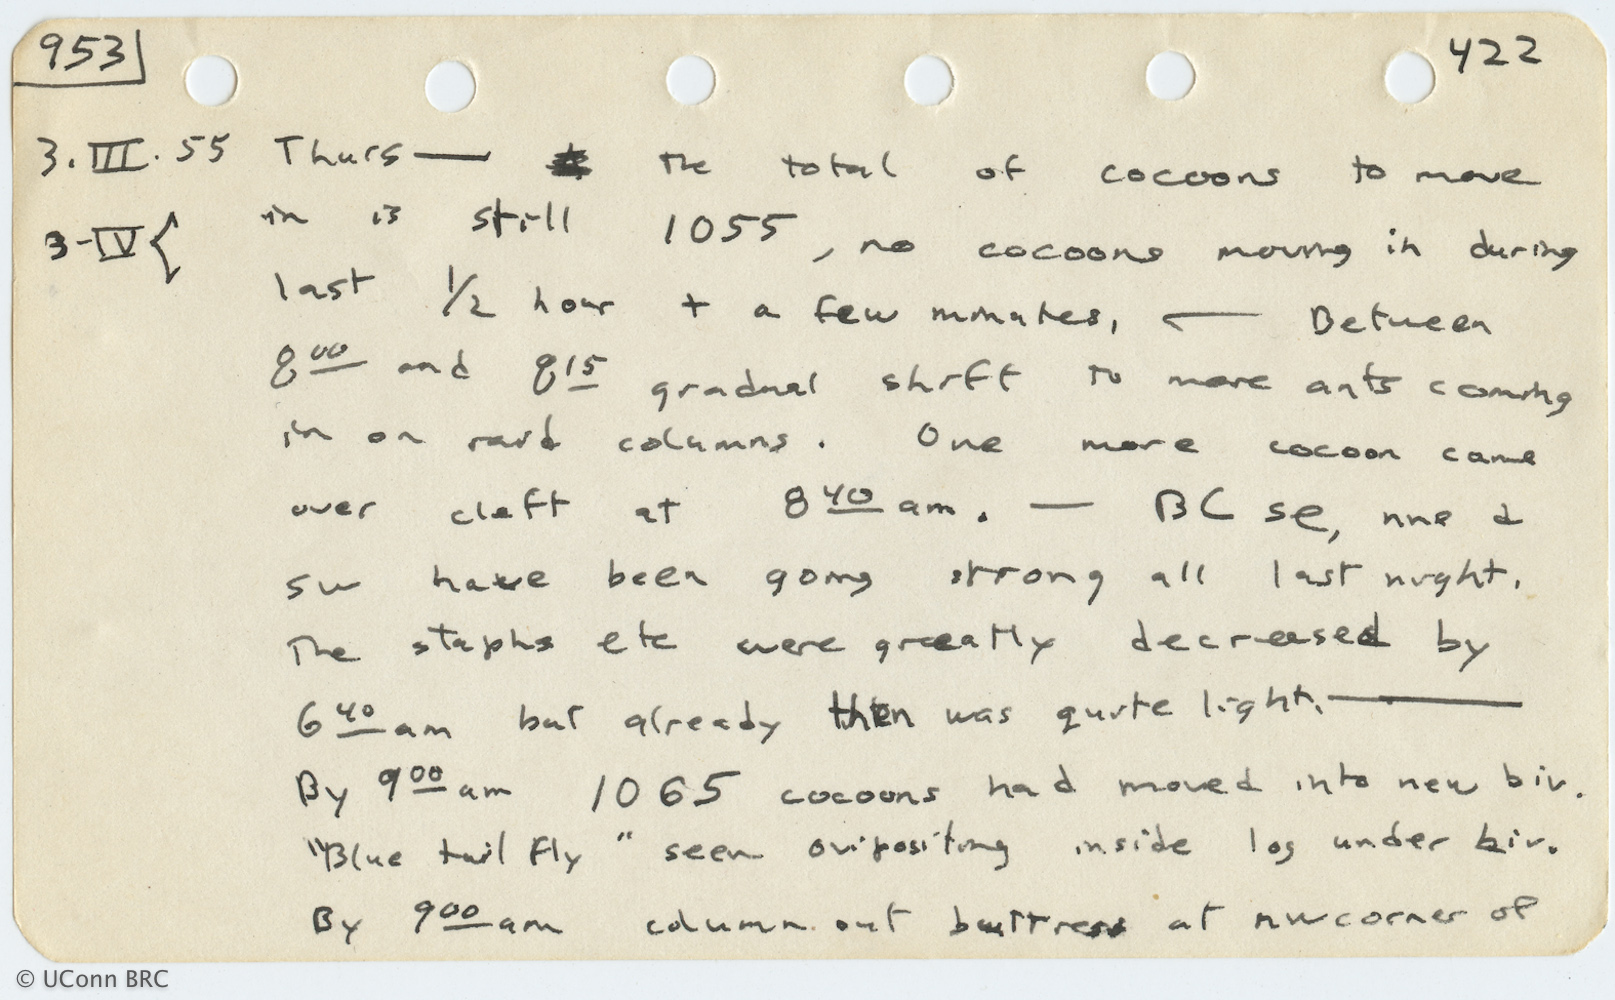 953 422
3.III.55 Thurs— the total of cocoons to move
3-IV{ in is still 1055, no cocoons moving in during
last 1/2 hour + a few minutes, — Between
8 00 and 8 15 gradual shift to more ants coming
in on raid columns. One more cocoon came
over cleft at 8 40 am. — BC se, nne &
sw have been going strong all last night.
The staphs etc were greatly decreased by
6 40 am but already then was quite light.—
By 9 00 am 1065 cocoons had moved into new biv.
"Blue tail fly" seen ovipositing inside log under biv.
By 9 00 am column out buttress at nw corner of
© UConn BRC